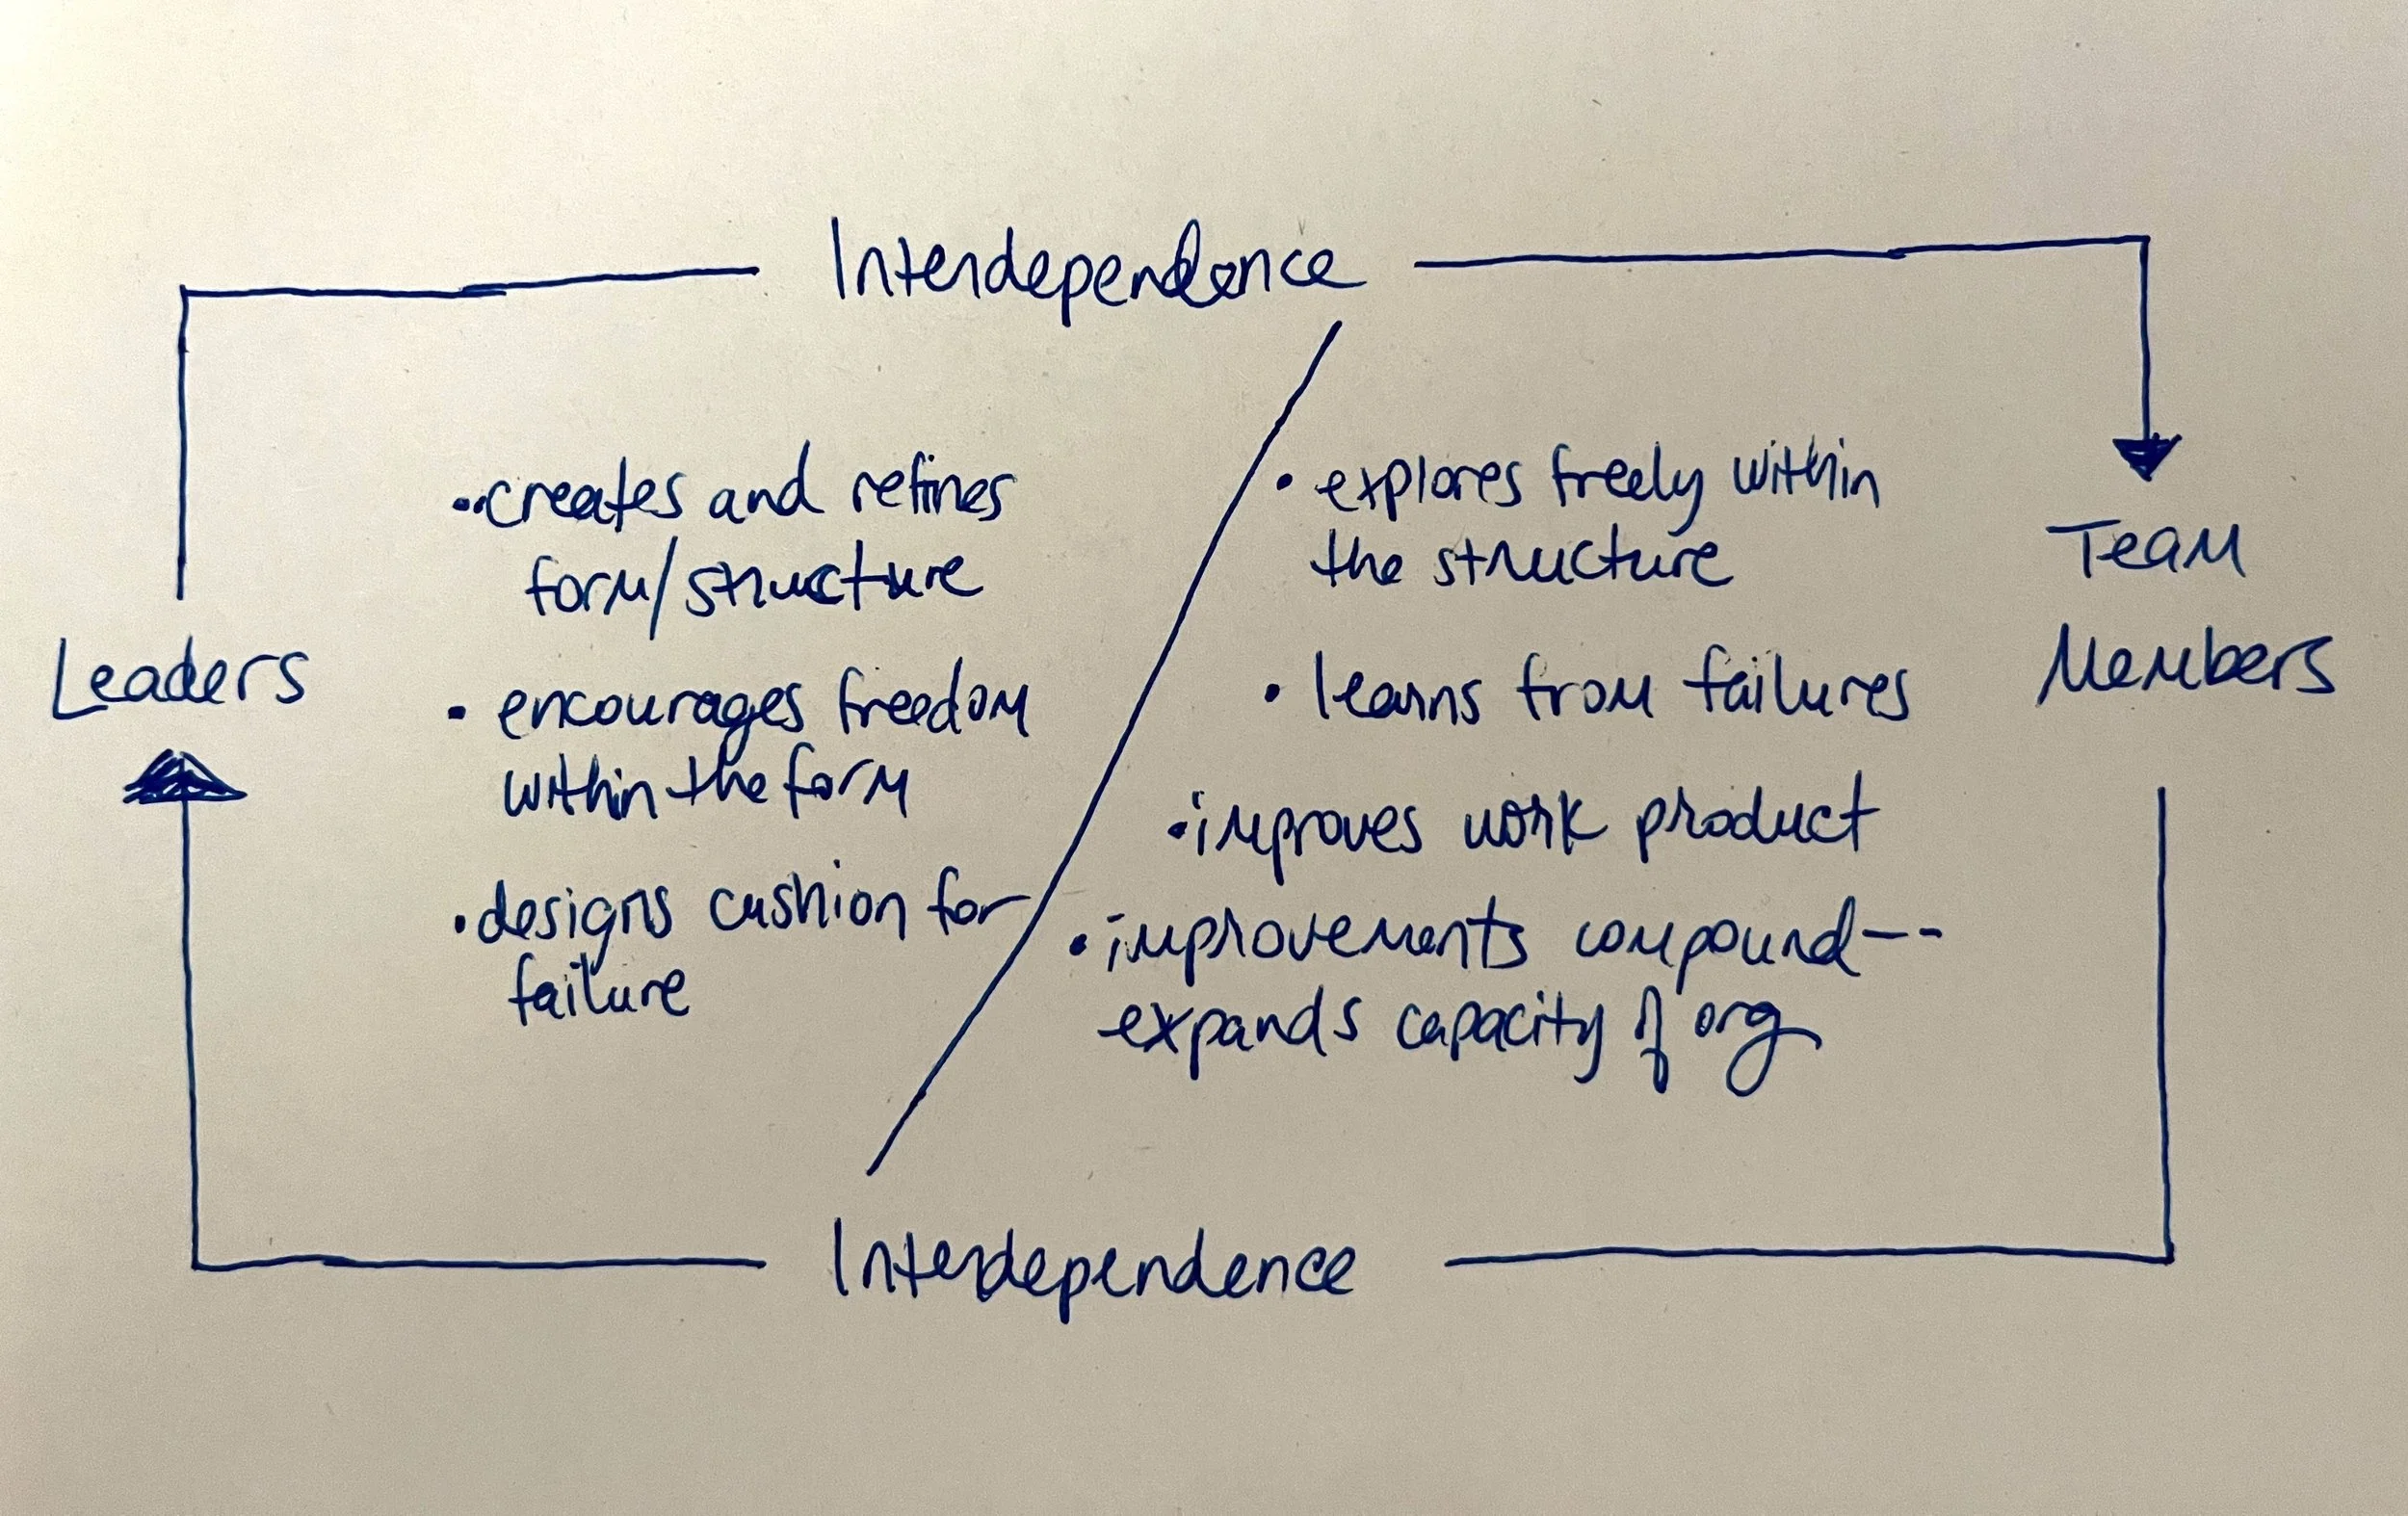 Interdependence
Leaders
• creates and refines
form/structure
• encourages freedom
within the form
• designs cushion for
failure
• explores freely within
the structure
• learns from failures
• improves work product
• improvements compound--
expands capacity of org
Team
Members
Interdependence